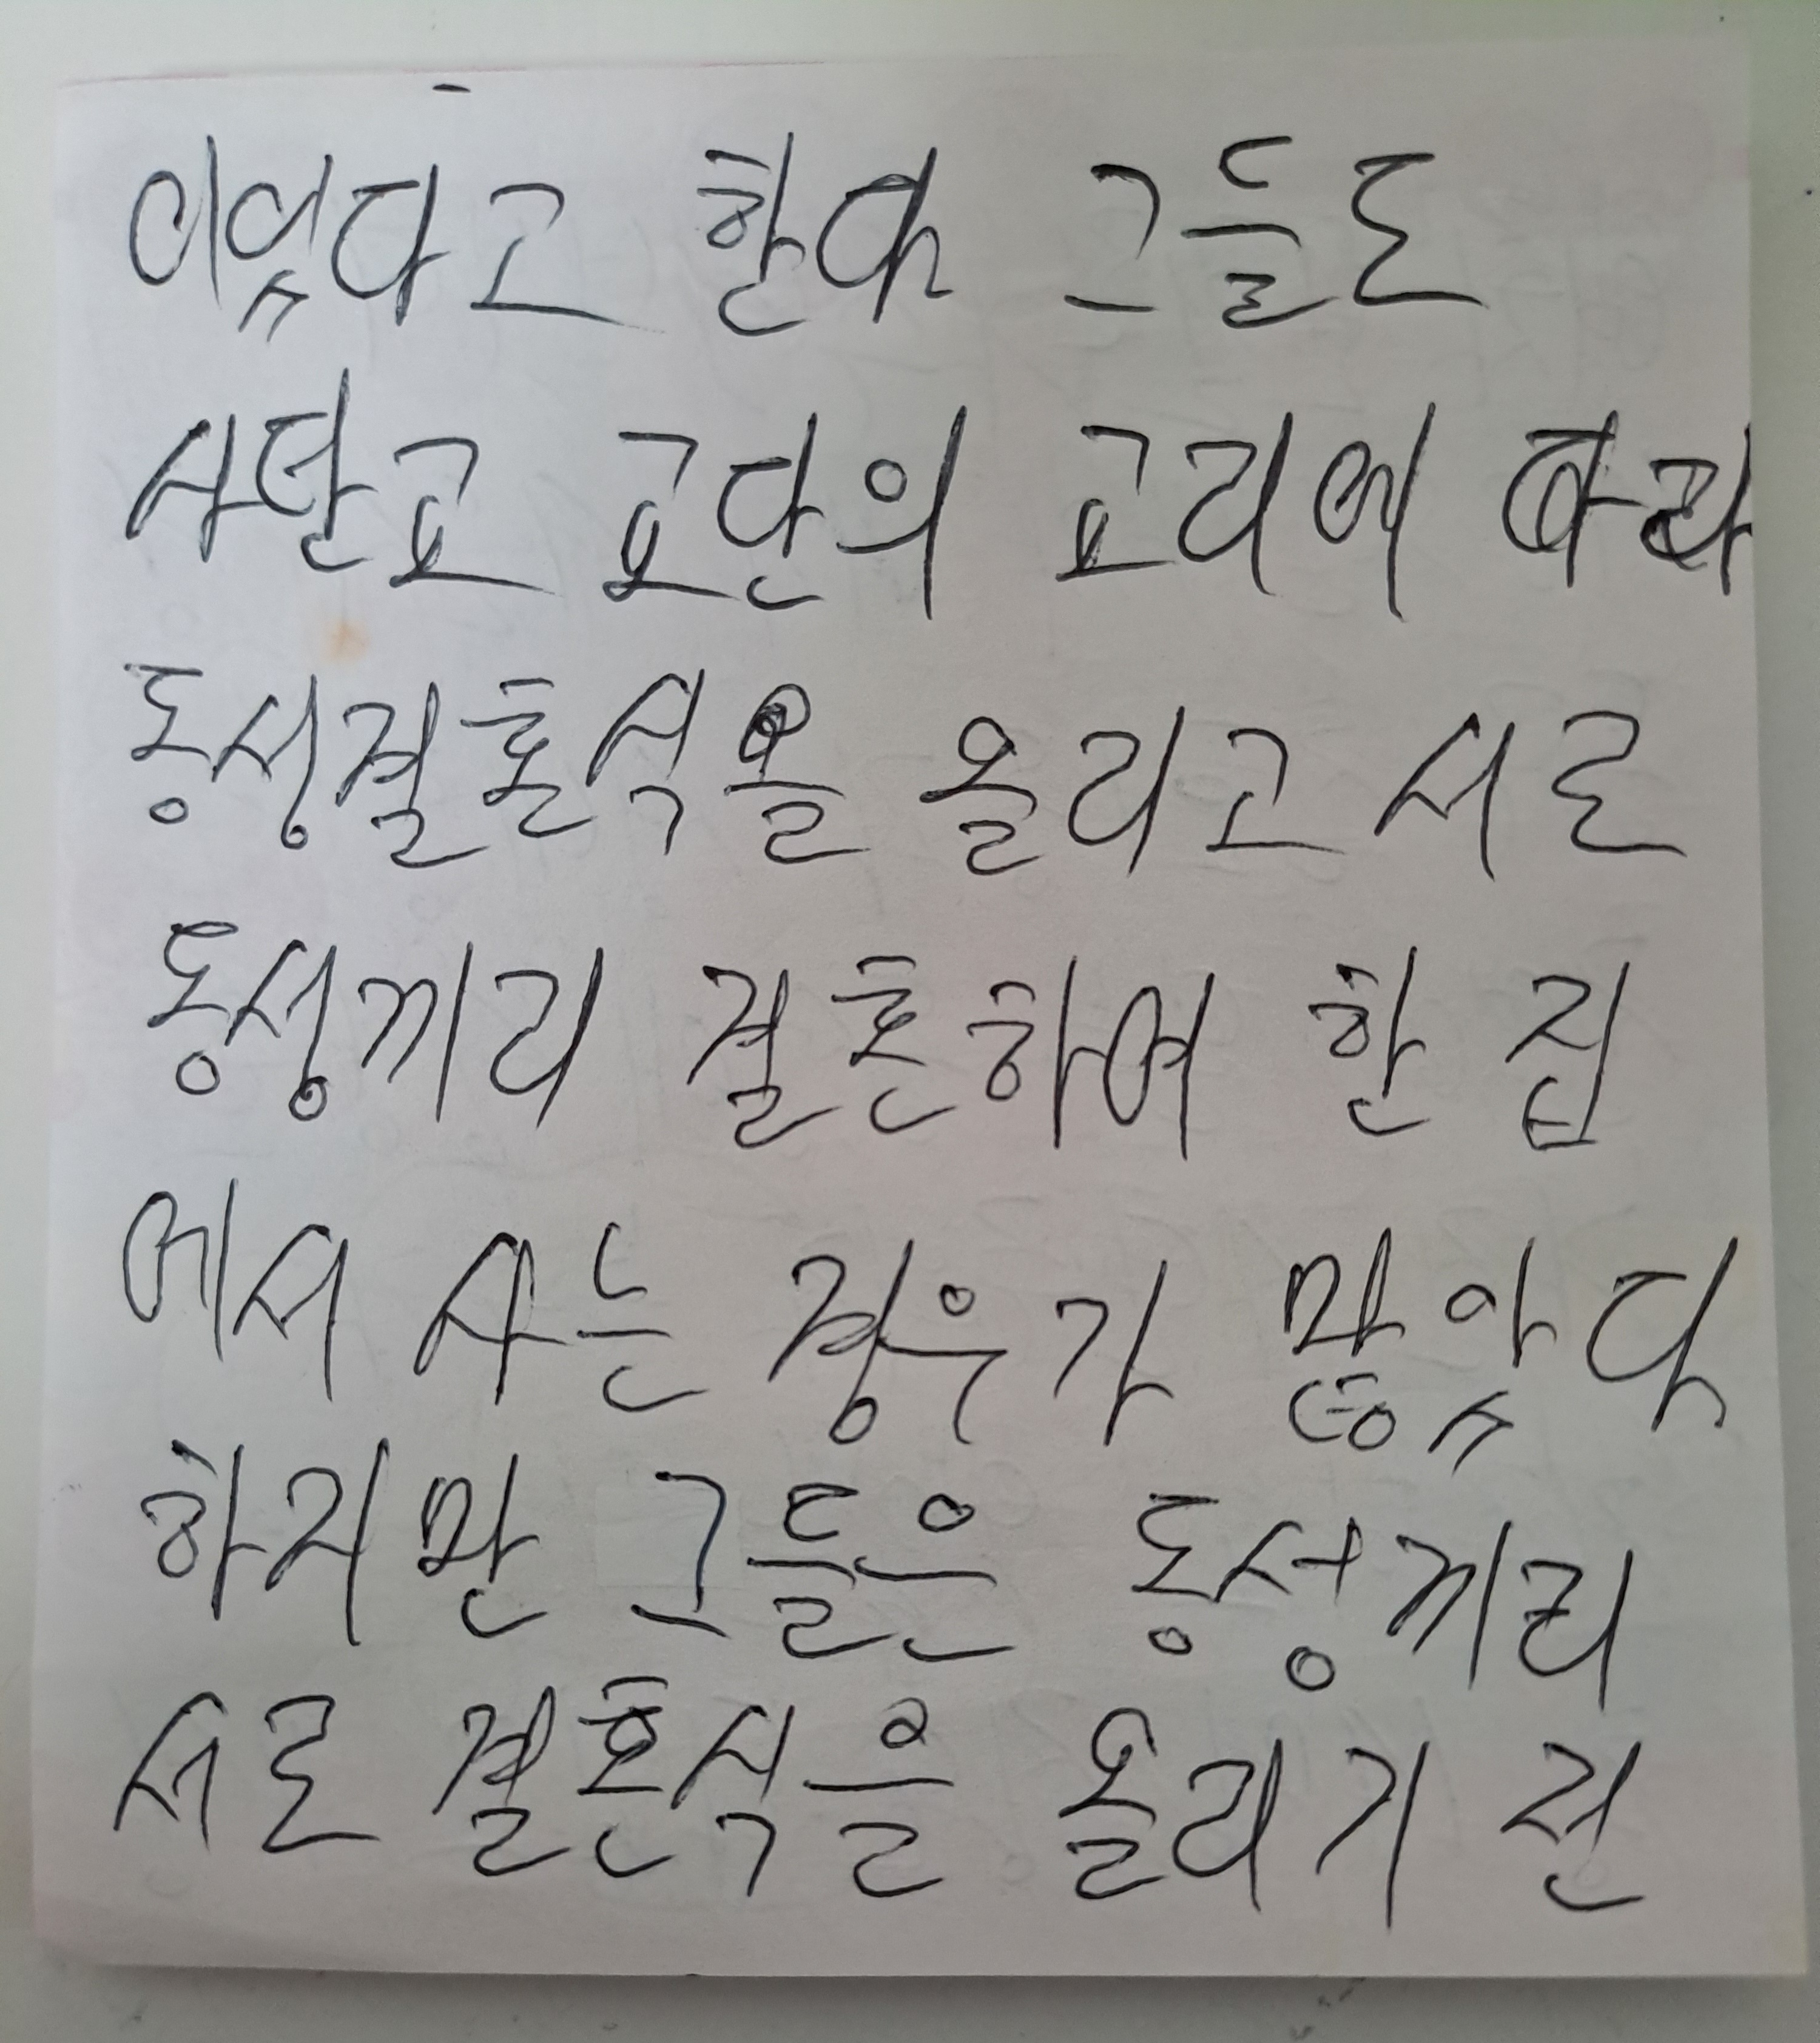 이었다고 한다 그들도
사탄교 교단의 교리에 따라
동성결혼식을 올리고 서로
동성끼리 결혼하여 한 집
에서 사는 경우가 많았다
하지만 그들은 동성끼리
서로 결혼식을 올리기 전